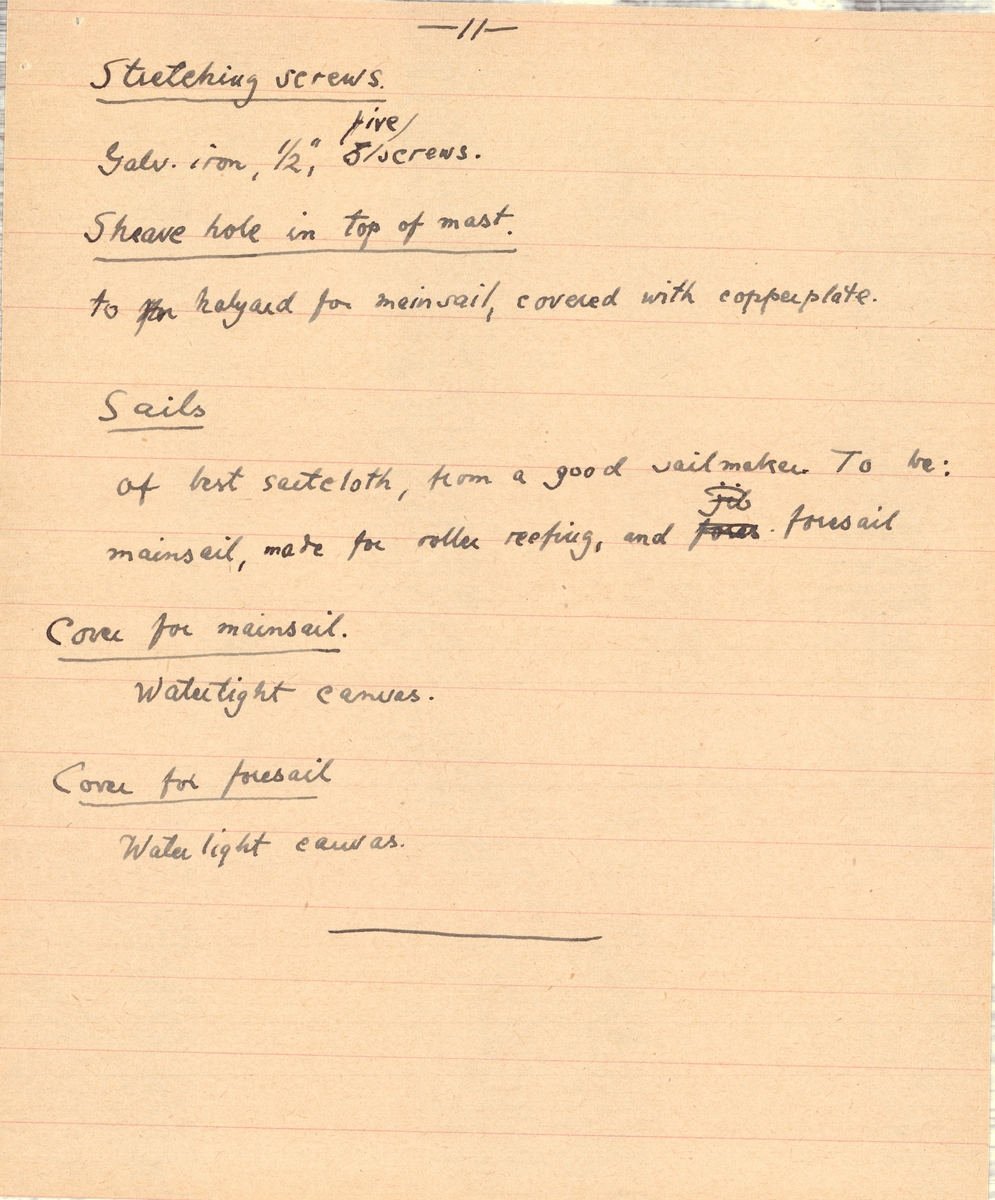 —11—
Stretching screws.
five/
Galv. iron, 1/2", 5/screws.
Sheave hole in top of mast.
to halyard for mainsail, covered with copperplate.
Sails
of best sailcloth, from a good sailmaker. To be:
jib
mainsail, made for roller reefing, and fores. foresail
Cover for mainsail.
Watertight canvas.
Cover for foresail
Watertight canvas.